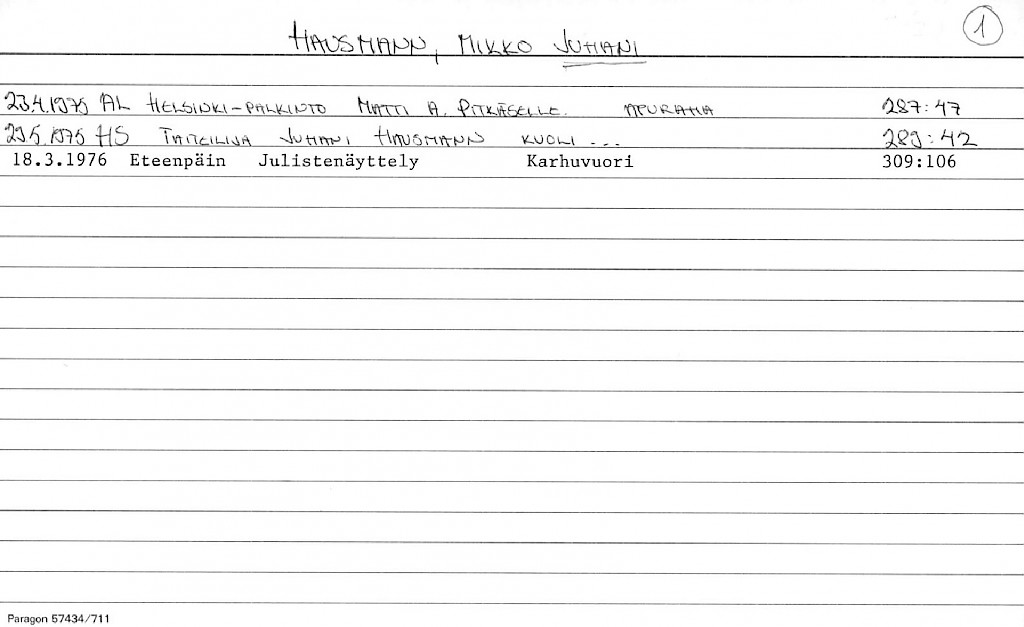 HAUSMANN, MIKKO JUHANI
1
23.4.1975 AL HELSINKI-PALKINTO MATTI A. PITKÄSELLE. APURAHA 287:47
29.5.1975 HS TAITEILIJA JUHANI HAUSMANN KUOLI ... 289:42
18.3.1976 Eteenpäin Julistenäyttely Karhuvuori 309:106
Paragon 57434/711